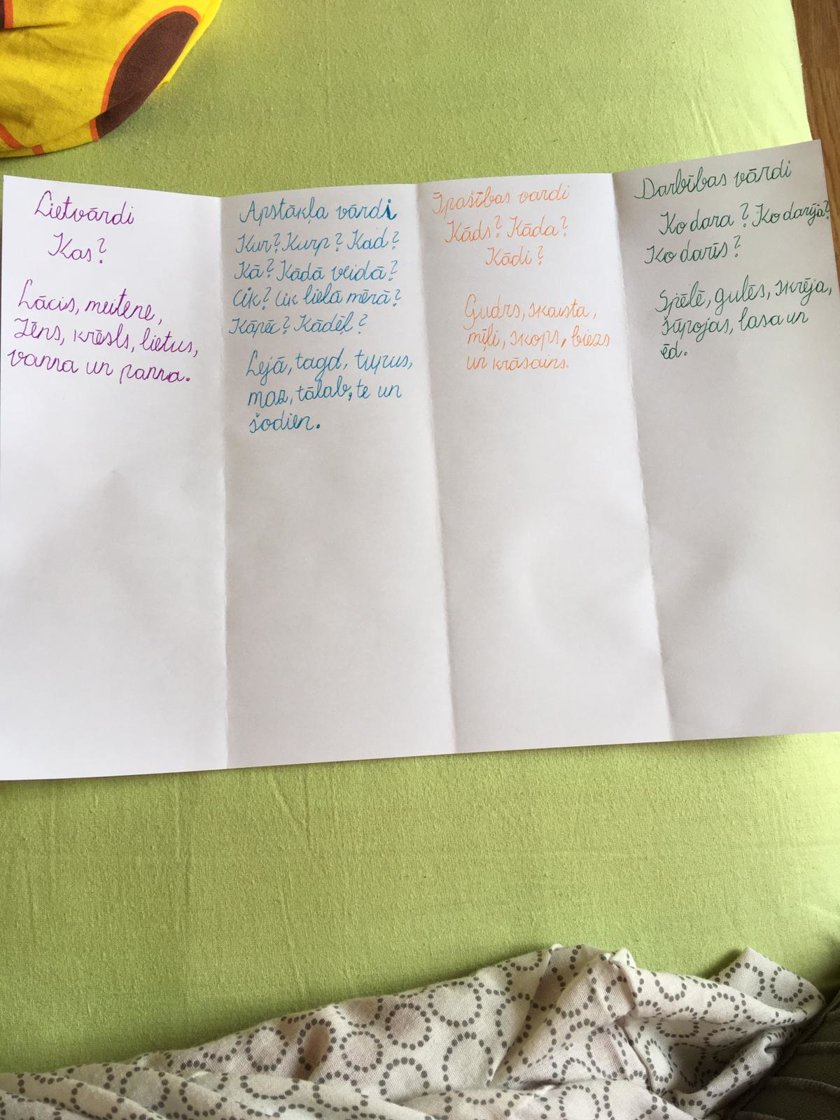 Lietvārdi
Kas?
Lācis, meitene,
Jēns, krēsls, lietus,
vanna un panna.
Apstākļa vārdi
Kur? Kurp? Kad?
Kā? Kādā veidā?
Cik? Cik lielā mērā?
Kāpēc? Kādēļ?
Lejā, tagd, turpus,
maz, tālab, te un
šodien.
Īpašības vārdi
Kāds? Kāda?
Kādi?
Gudrs, skaista,
mīļi, skops, biezs
un krāsains.
Darbības vārdi
Ko dara? Ko darīja?
Ko darīs?
Spēlē, gulēs, skrēja,
šūpojas, lasa un
ēd.